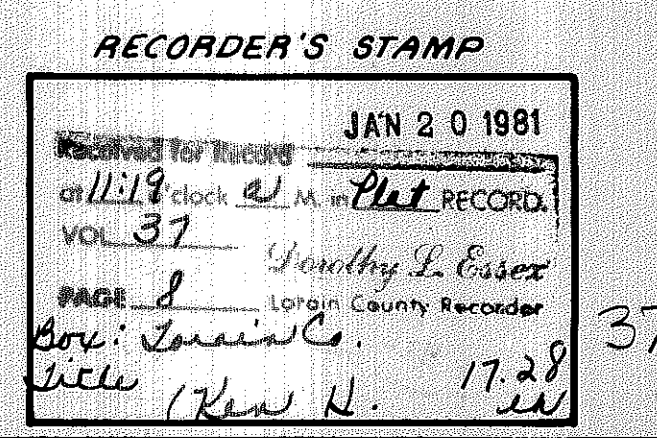 RECORDER'S STAMP
JAN 20 1981
Received for Record
at 11:19 o'clock a M. in Plat RECORD.
VOL 37
Dorothy L. Essex
PAGE 8 Lorain County Recorder
Box: Lorain Co.
Title 17.28
(Ken H.
37